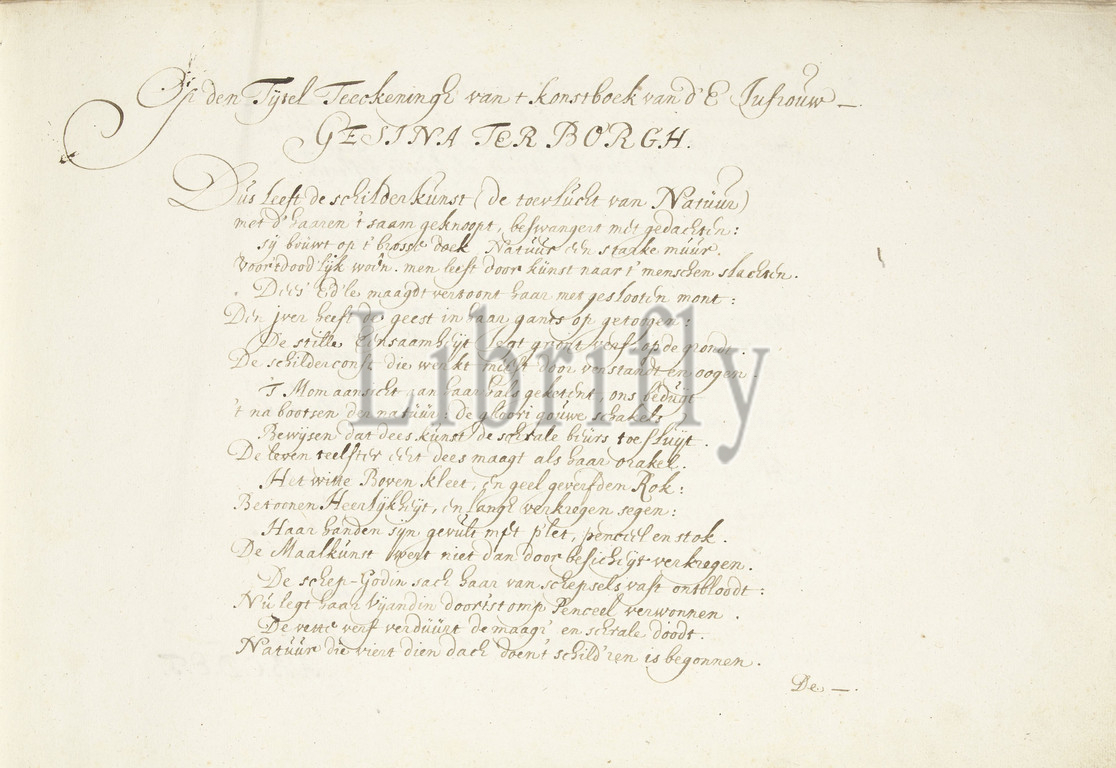 Op den Tytel Teeckeningh van t konstboek van d'E Jufrouw —
GESINA TER BORGH.
Dus leeft de schilderkunst (de toevlucht van Natuur)
met d'haaren t'saam geknoopt, beswangert mit gedachten:
sij bouwt op 't brosse doek Natuur een starke muur.
Voor'tdood'lijk woên. men leeft door kunst naar t' menschen slachten.
Dees' Ed'le maagdt vertoont haar met geslooten mont:
Den jver heeft de geest in haar gants op getogen:
De stille Eensaamheyt legt gront verf op de grondt.
De schilderconst die werkt meest door verstandt en oogen
'T Mom aansicht, aan haar hals geketent, ons beduyt
't na bootsen der natuur: de gloori gouwe schakels
Bewijsen dat dees kunst de schrale beurs toesluyt.
De leven teelster eert dees maagt als haar orakel.
Het witte Boven kleet, en geel geverfden Rok:
Betoonen Heerlijkheyt, en langh verkregen segen:
Haar handen sijn gevult met p'let, penceel en stok.
De Maalkunst wert niet dan door besicheyt verkregen.
De schep-Godin sach haar van schepsels vast ontbloodt:
Nu legt haar Vyandin door't stomp Penceel verwonnen.
De vette verf verduurt de maag're en schrale doodt.
Natuur die viert dien dach doen't schild'ren is begonnen.
De —
Librifly